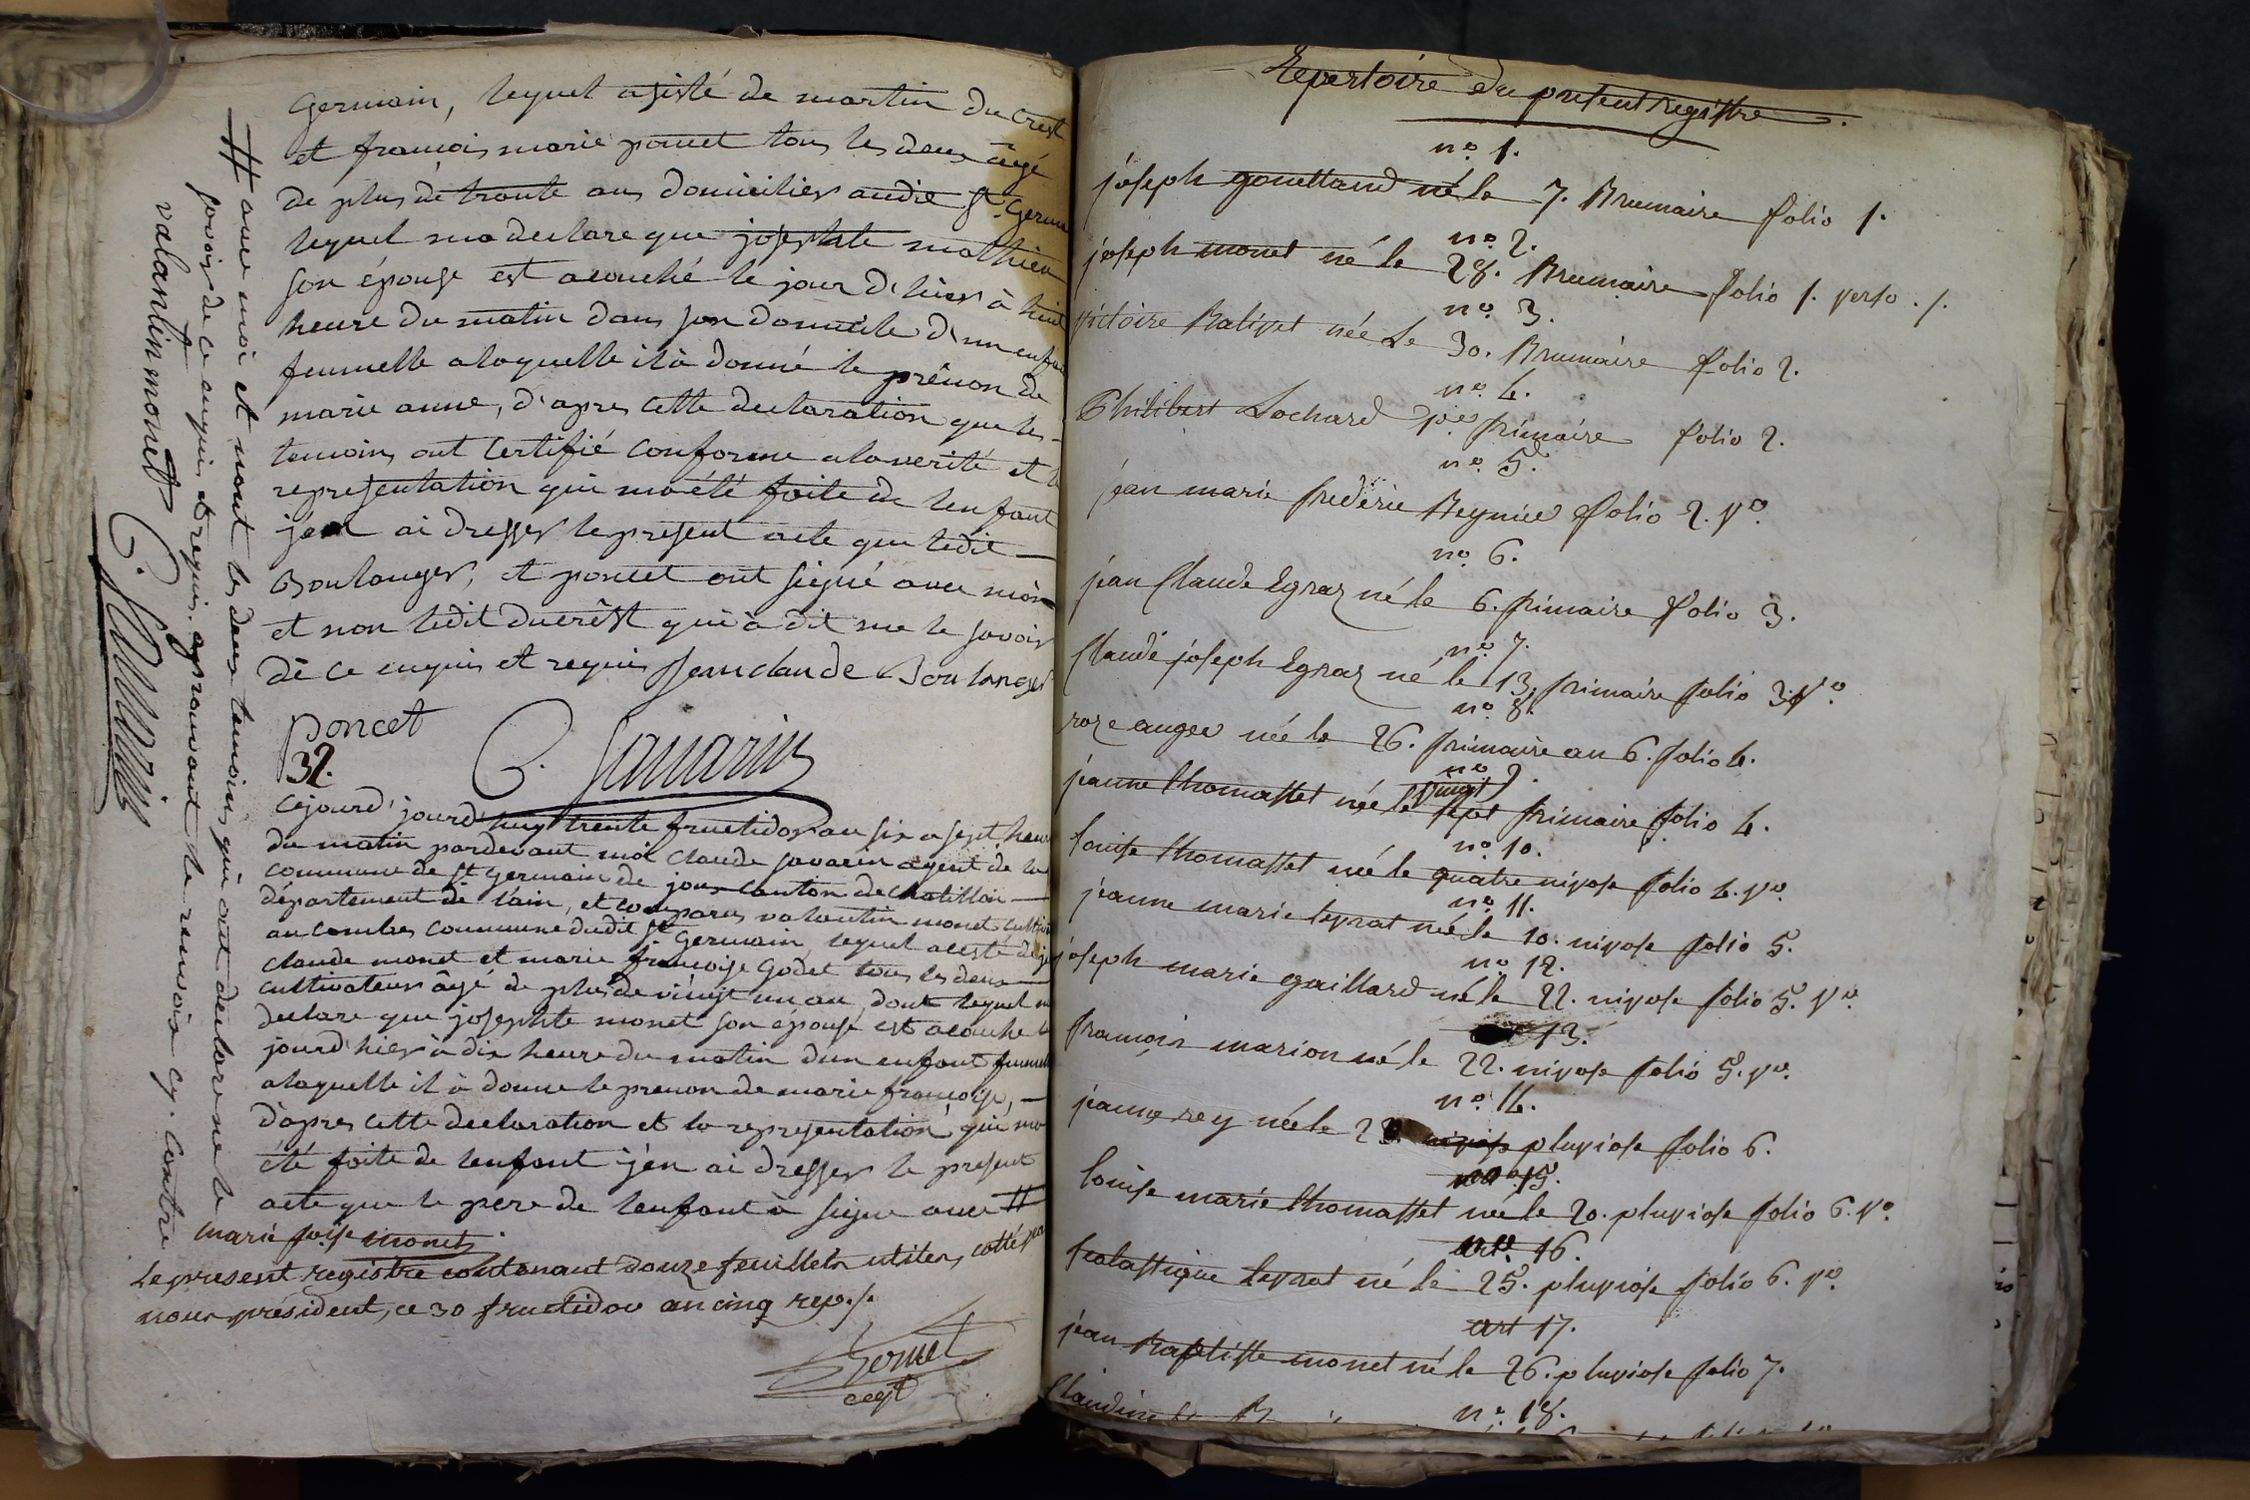 Germain, lequel asisté de martin du crest
et francois marie poncet tous les deux âgé
de plus de trante ans domicilier audit St. Germ
lequel ma declare que josephte mathieu
son épouse est acouché le jour d'hier à huit
heure du matin dans son domicile d'un enfan
femmelle a laquelle il à donné le prénon de
marie anne, d'apres cette declaration que les
temoins ont certifié conforme a la verité et l
representation qui ma été faite de lenfant
jen ai dresser le present acte que ledit
Boulanger, et poncet ont signé avec moi
et non ledit ducrêst qui à dit ne le savoir
de ce enquis et requis Jean claude Boulanger
poncet C. Savarin
32.
Cejourd'jourd'huy trente fructidor an six a sept heur
du matin pardevant moi Claude Savarin agent de la
commune de St germain de joux canton de chatillon
département de l'ain, et comparus valantin monet cultiv
au combes commune dudit St Germain, lequel acisté de
claude monet et marie francoise Godet tous les deux
cultivateur âgé de plus de vingt un an, dont lequel m
declare que josephte monet son épouse est acouché le
jourd'hier à dix heure du matin d'un enfant femmelle
a laquelle il à donne le prenon de marie francoise,
d'apres cette declaration et la representation qui ma
été faite de lenfant j'en ai dresser le present
acte que le pere de lenfant à signe avec #
marie foise monet
Le present registre contenant douze feuillets utiles, cotté par
nous président, ce 30 fructidor an cinq rep.
Gernel
# avec moi et nont les deux temoins qui ont declare ne le
savoir de ce enquis et requis. aprouvant le renvoix cy. contre
valantin monet
C. Savarin
Repertoire du present Registre.
no. 1.
joseph gouettand né le 7. Brumaire folio 1.
no. 2.
joseph monet né le 28. Brumaire folio 1. verso. /.
no. 3.
victoire Balivet née Le 30. Brumaire folio 2.
no. 4.
Philibert Lochard pr. frimaire folio 2.
no. 5.
jean marie frederic Reynier folio 2. vo.
no. 6.
jean Claude Egraz né le 6. frimaire folio 3.
no. 7.
Claude joseph Egraz né le 13. frimaire folio 3. vo.
no. 8.
roze anger née le 26. frimaire an 6. folio 4.
no. 9.
jeanne thomasset née le vingt sept frimaire folio 4.
no. 10.
louise thomasset née le quatre nivose folio 4. vo.
no. 11.
jeanne marie leprat née le 10. nivose folio 5.
no. 12.
joseph marie gaillard né le 22. nivose folio 5. vo.
13.
francois marion né le 22. nivose folio 5. vo.
no. 14.
jeanne rey née le 2 nivose pluviose folio 6.
no. 15.
louise marie thomasset née le 20. pluviose folio 6. vo.
art. 16.
scolastique leprat né le 25. pluviose folio 6. vo.
art 17.
jean Baptiste monet né le 26. pluviose folio 7.
no. 18.
Claudine